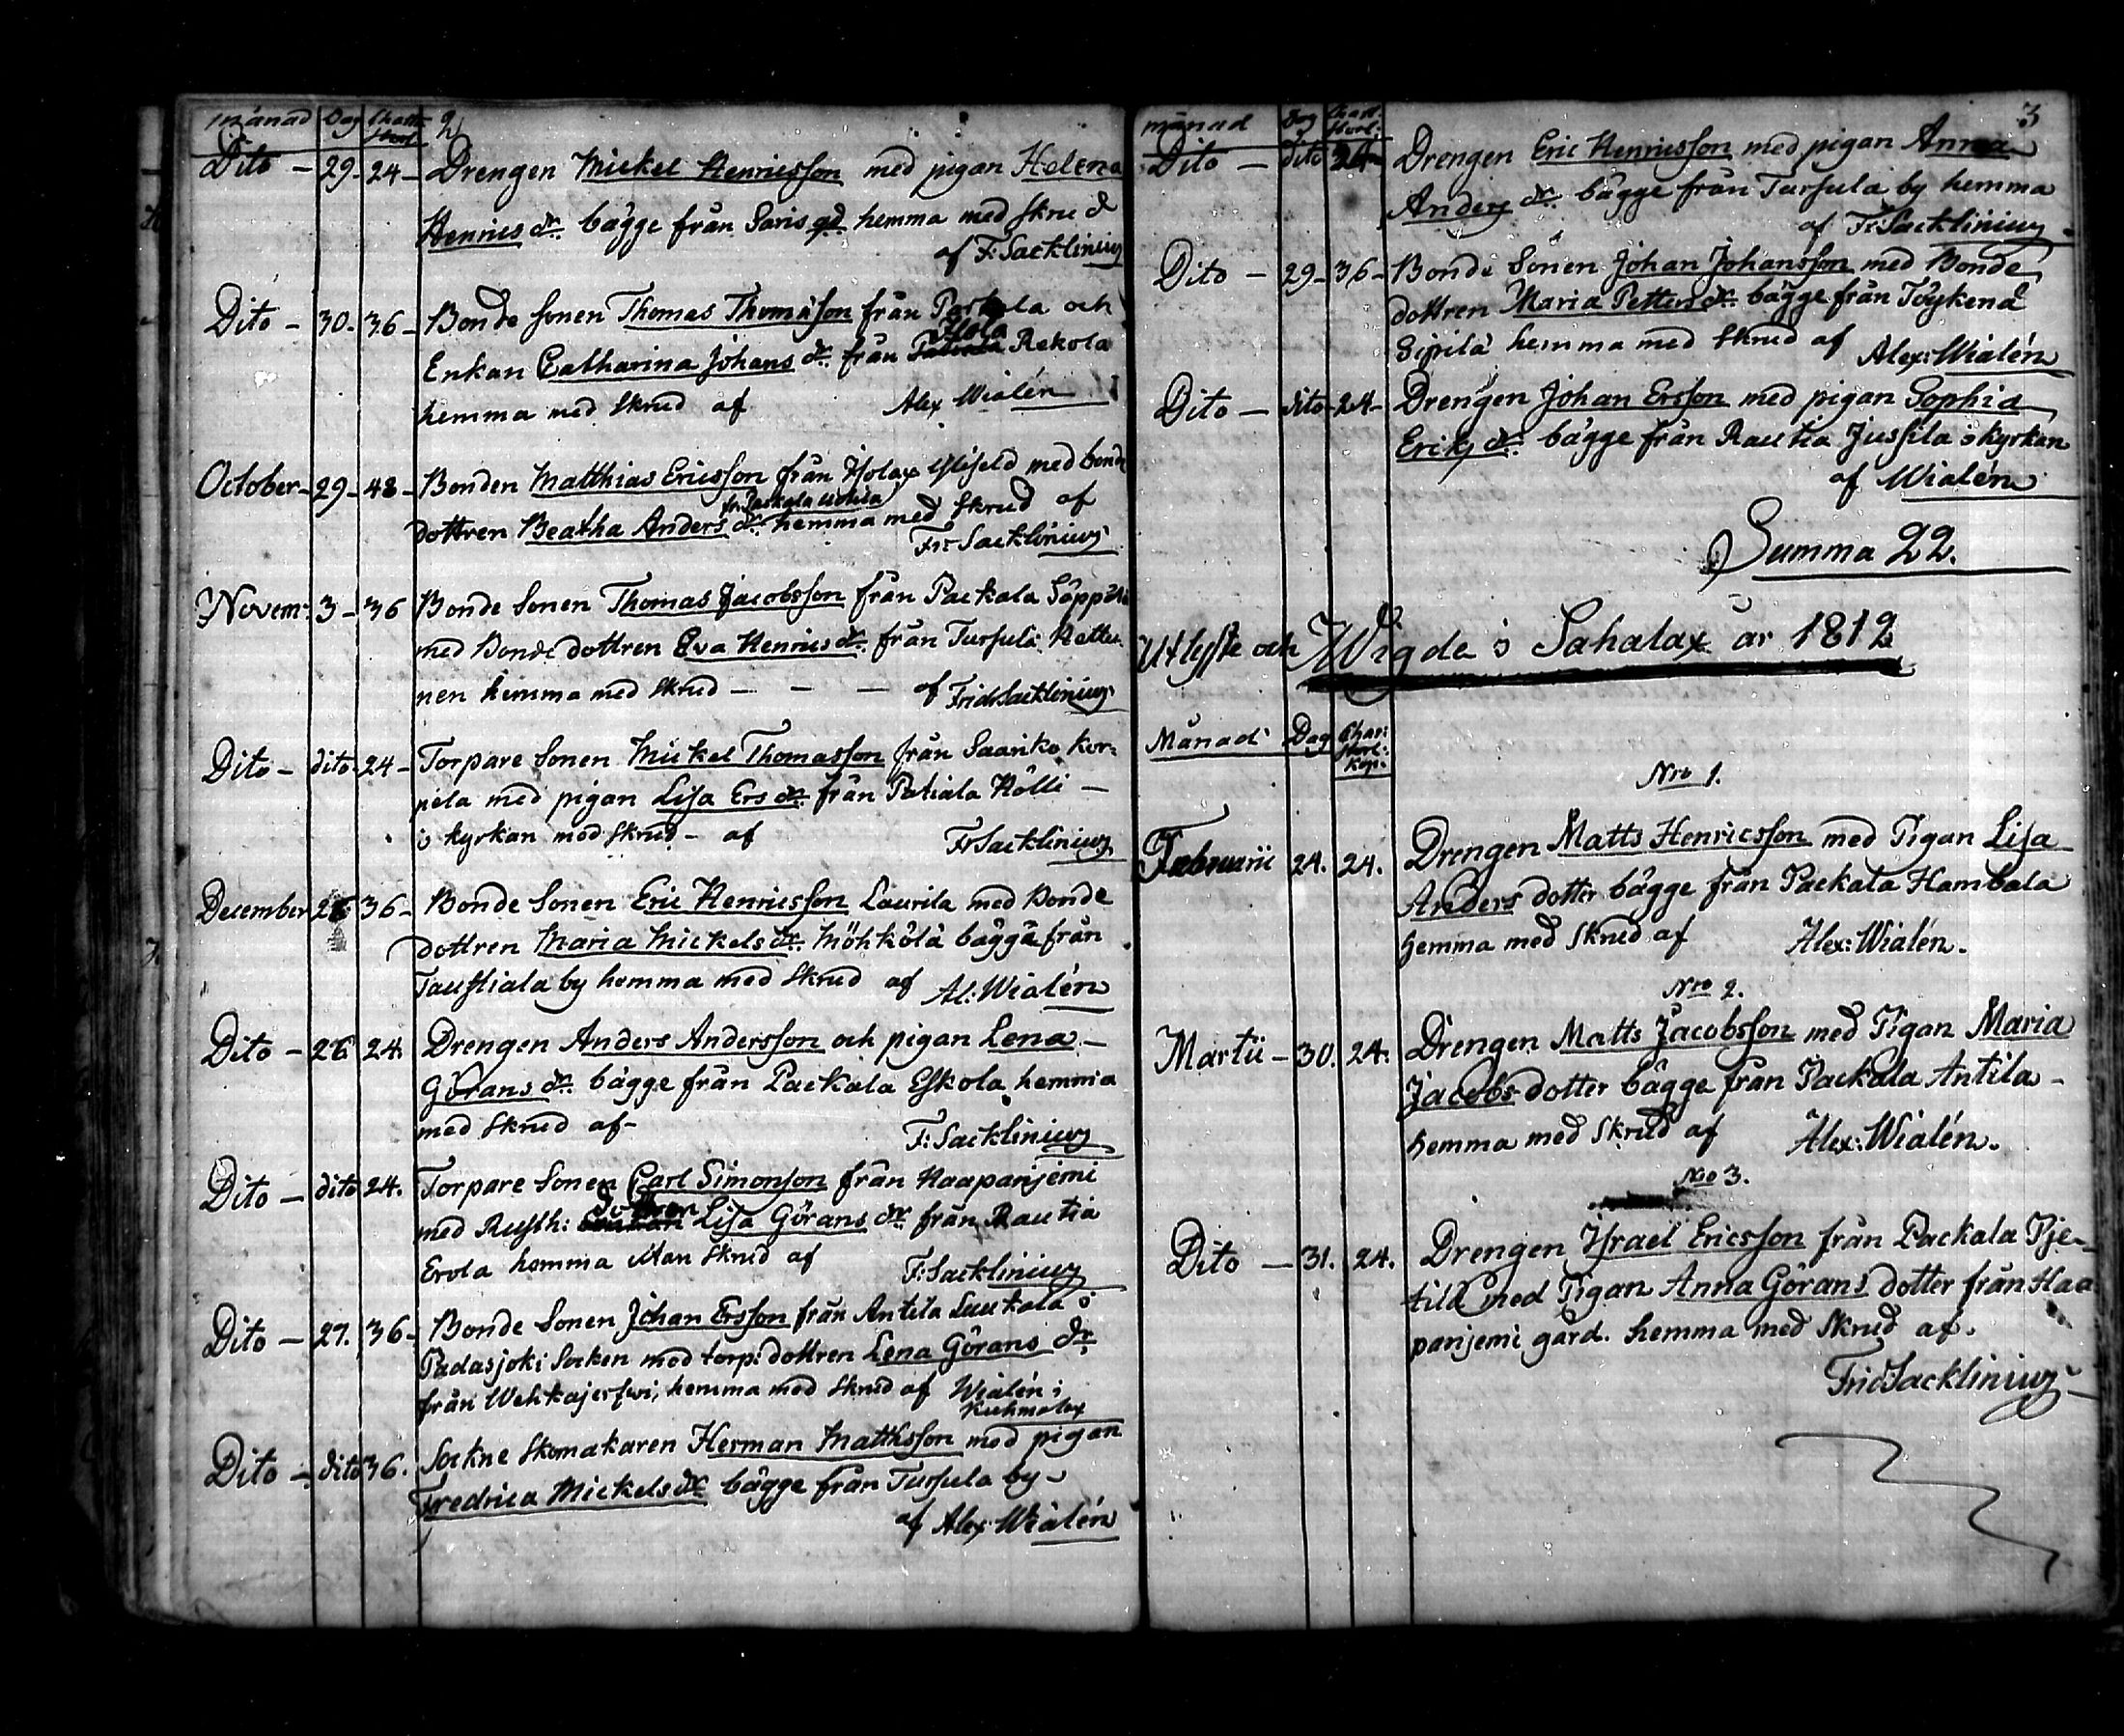 månad Dag Charta 2
Dito - 29 - 24 - Drengen Mickel Henricsson med pigan Helena
Henrics dr. bägge från Saris gd hemma med skrud
af F: Sacklinius
Dito - 30 - 36 - Bonde sonen Thomas Thomasson från och
Enkan Catharina Johans dr. från Rekola
hemma med skrud af Alex Wialén
October - 29 - 48 - Bonden Matthias Ericsson från Isolax med bonde
dottren Beatha Anders dr. hemma med skrud af
Fr: Sacklinius
Novem: 3 - 36 Bonde sonen Thomas Jacobsson från Packala Söppilä
med Bonde dottren Eva Henrics dr. från Tursula Hettu-
nen hemma med skrud - - - af Frid: Sacklinius
Dito - dito - 24 - Torpare sonen Mickel Thomasson från Saariko kor-
pela med pigan Lisa Ers dr. från Patiala Hölli -
i kyrkan med skrud - af Fr Sacklinius
December 36 - Bonde sonen Eric Henricsson Laurila med Bonde
dottren Maria Mickels dr. Möhkölä bägge från
Taustiala by hemma med skrud af Al: Wialén
Dito - 26 24. Drengen Anders Andersson och pigan Lena -
Görans dr. bägge från Packala Eskola hemma
med skrud af - F: Sacklinius
Dito - dito 24. Torpare sonen Carl Simonson från Haapanjemi
dottren
med Rusth: Lisa Görans dr från Rautia
Erola hemma utan skrud af F: Sacklinius
Dito - 27. 36 - Bonde sonen Johan Ersson från Antila Luukala i
Padasjoki socken med torp: dottren Lena Görans dr.
från Wehkajerfwi, hemma med skrud af Wialén i
Kuhmalax
Dito - dito 36. Sockne skomakaren Herman Matthsson med pigan
Fredrica Mickels dr. bägge från Tursula by -
af Alex: Wialén
3
månad Dag
Dito - dito 24 Drengen Eric Henricsson med pigan Anna
Anders dr. bägge från Tursula by hemma
af F: Sacklinius
Dito - 29 - 36 - Bonde sonen Johan Johansson med Bonde
dottren Maria Petters dr. bägge från Töykenä
Sipilä hemma med skrud af Alex: Wialén
Dito - dito - 24 - Drengen Johan Ersson med pigan Sophia
Eriks dr. bägge från Rautia Jussila i kyrkan
af Wialén
Summa 22.
Utlyste och Wigde i Sahalax år 1812
Månad Dag Char:
kop:
Nro 1.
Februarii 24. 24. Drengen Matts Henricsson med Pigan Lisa
Anders dotter bägge från Packala Hambala
hemma med skrud af Alex: Wialén.
Nro 2.
Martii - 30. 24. Drengen Matts Jacobsson med Pigan Maria
Jacobs dotter bägge från Packala Antila -
hemma med skrud af Alex: Wialén.
No 3.
Dito - 31. 24. Drengen Israel Ericsson från Packala Pje-
tilä med Pigan Anna Görans dotter från Haa
panjemi gård. hemma med skrud af.
Frid Sacklinius